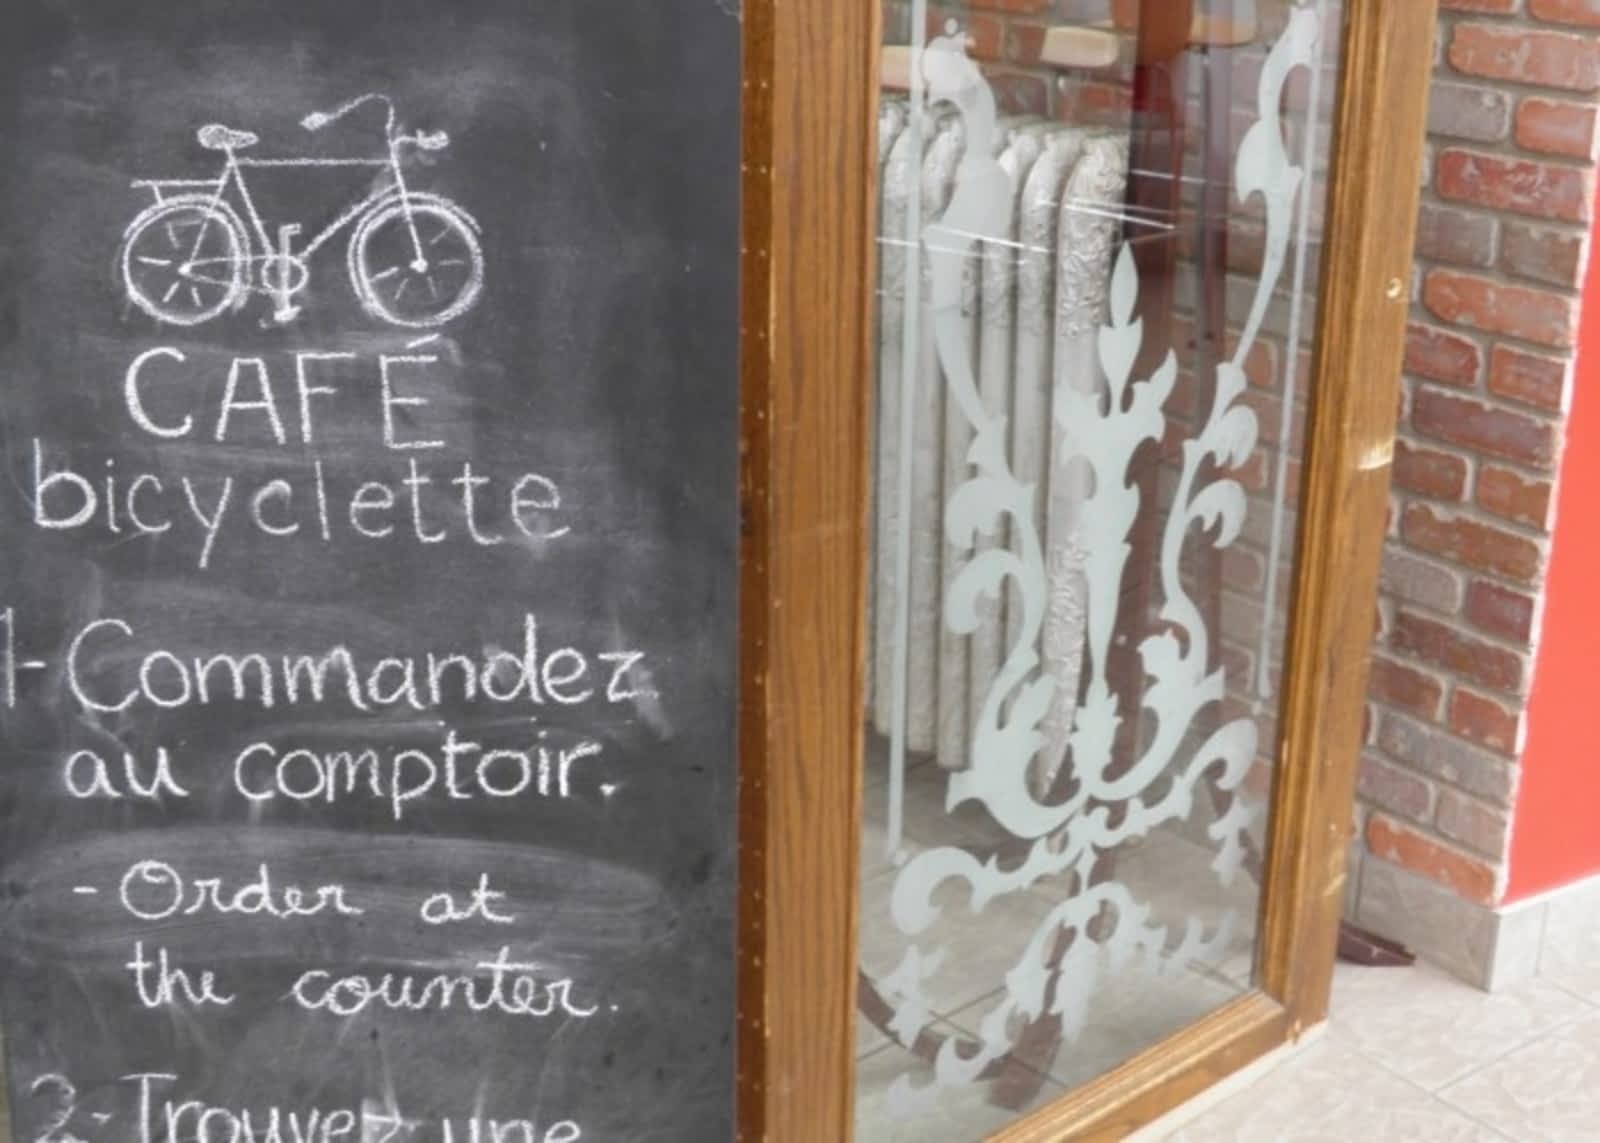 CAFÉ
bicyclette
1-Commandez
au comptoir.
- Order at
the counter.
2-Trouvez une